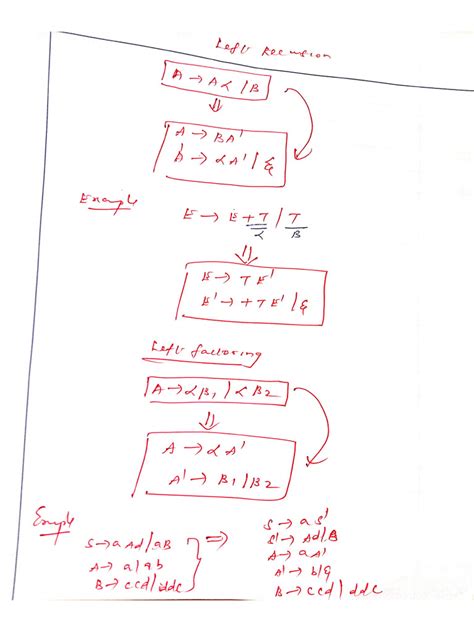 Left Recursion
A → Aα | B
⇓
A → BA'
A → αA' | ε
Example
E → E + T / T
α B
⇓
E → TE'
E' → +TE' | ε
Left factoring
A → αB1 | αB2
⇓
A → αA'
A' → B1 | B2
Example
S → aAd | aB
A → a | ab
B → ccd | ddc
⇒
S → aS'
S' → Ad | B
A → aA'
A' → b | ε
B → ccd | ddc